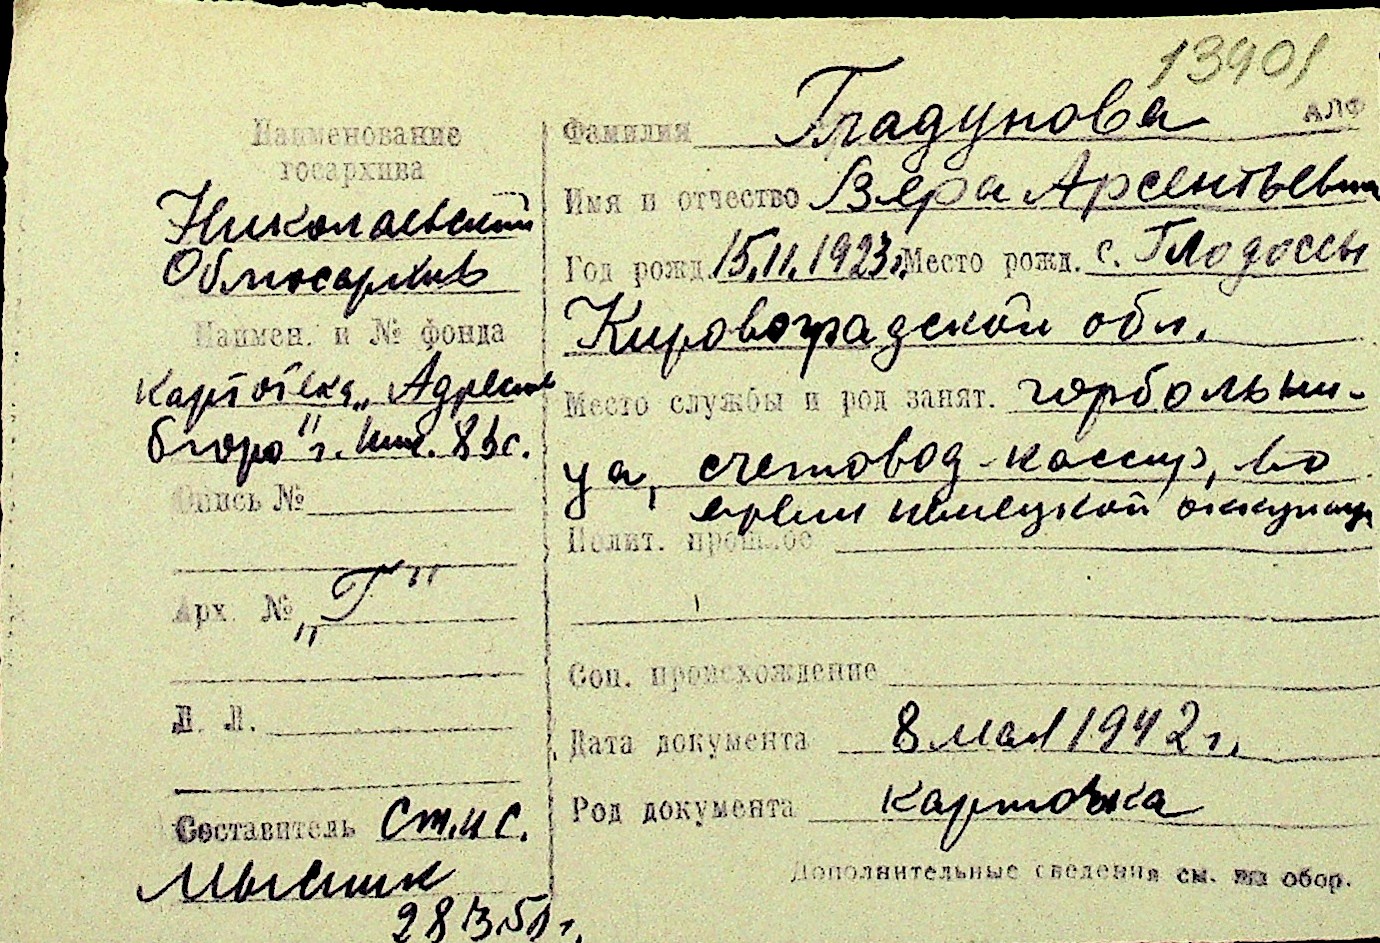 13901
АЛФ
Наименование
госархива
Николаевский
Облгосархив
Наимен. и № фонда
Картотека „Адресное
бюро" г.
Опись №
Арх. № „Г"
Л. Л.
Составитель Ст.н.с.
Мысник
28
Фамилия Гладунова
Имя и отчество Вера Арсентьевна
Год рожд. 15.11.1923г. Место рожд. с. Глодоссы
Кировоградской обл.
Место службы и род занят. горбольни-
ца, счетовод-кассир, во
время немецкой оккупации
Полит. прошлое
Соц. происхождение
Дата документа 8 мая 1942 г.
Род документа карточка
Дополнительные сведения см. на обор.